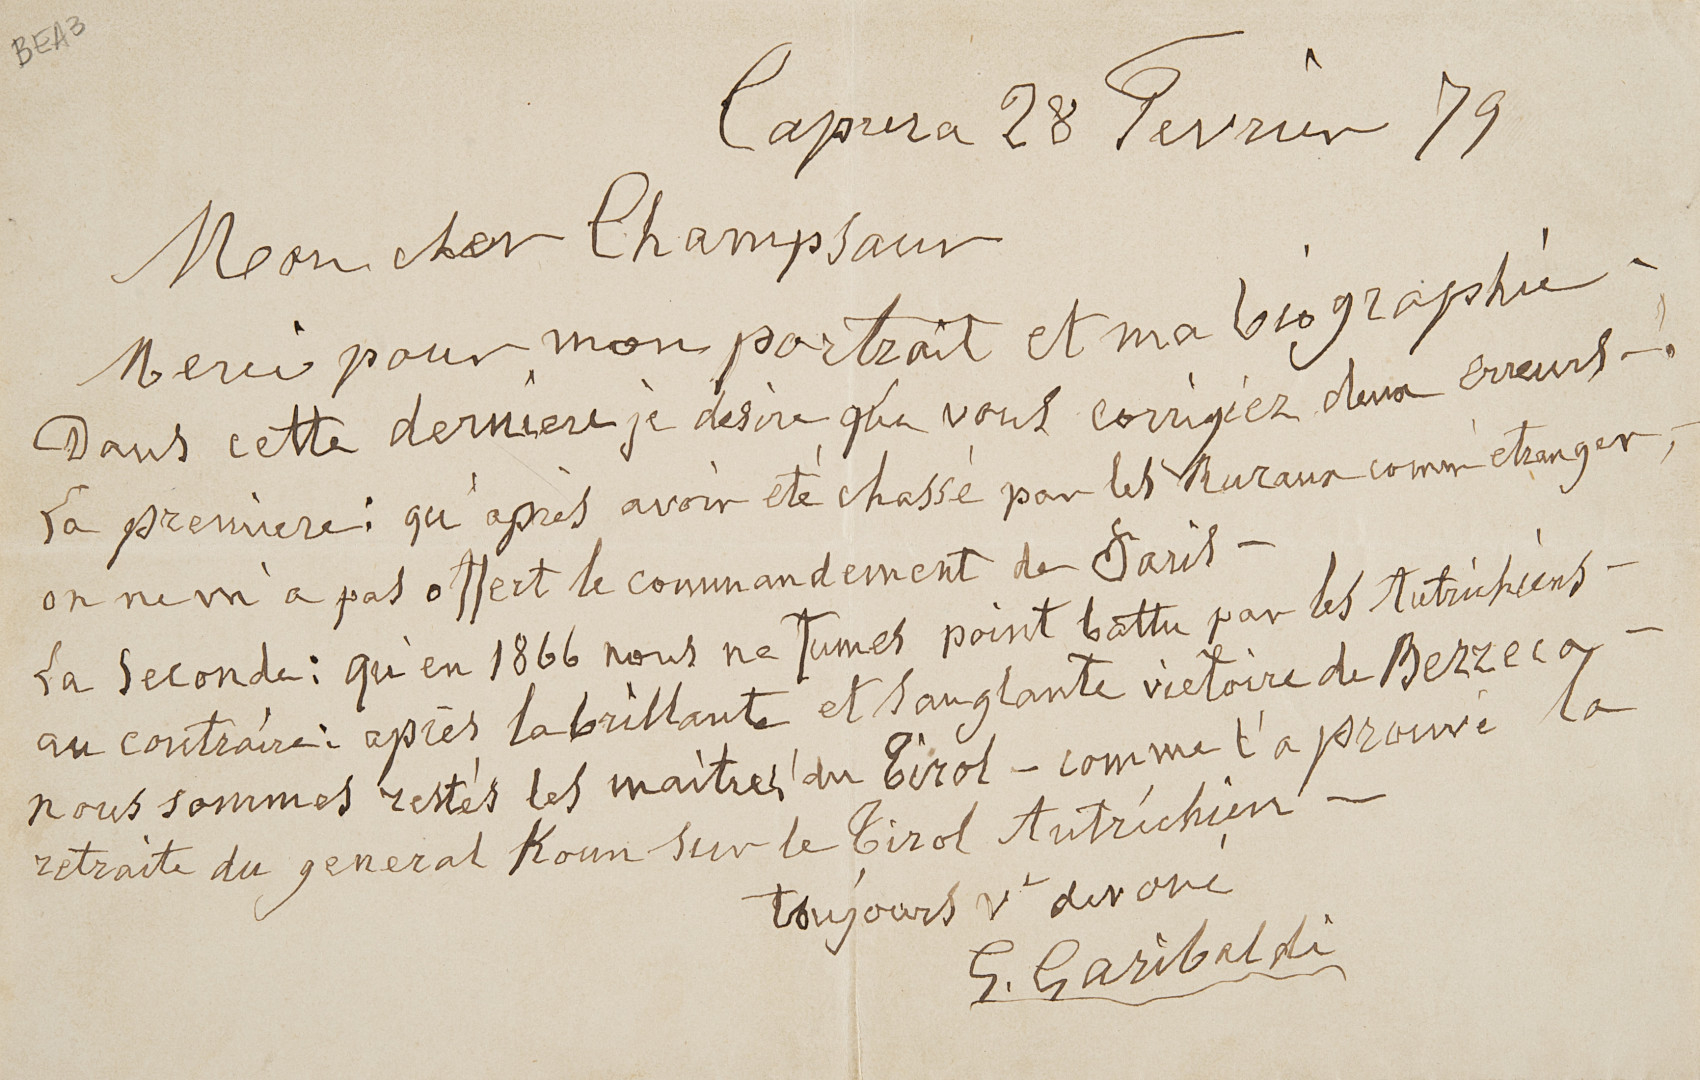 BEA3
Caprera 28 Fevrier 79
Mon cher Champsaur
Merci pour mon portrait et ma biographie –
Dans cette derniere je désire que vous corrigiez deux erreurs –.
La premiere: qu'après avoir été chassé par les Ruraux comm' etranger, –
on ne m'a pas offert le commandement de Paris –
La seconde: qu'en 1866 nous ne fumes point battu par les Autrichiens –
au contraire: après la brillante et sanglante victoire de Bezzeca –
nous sommes restés les maitres du Tirol – comme l'a prouvé la
retraite du general Koun sur le Tirol Autrichien –
toujours vt devoué
G. Garibaldi